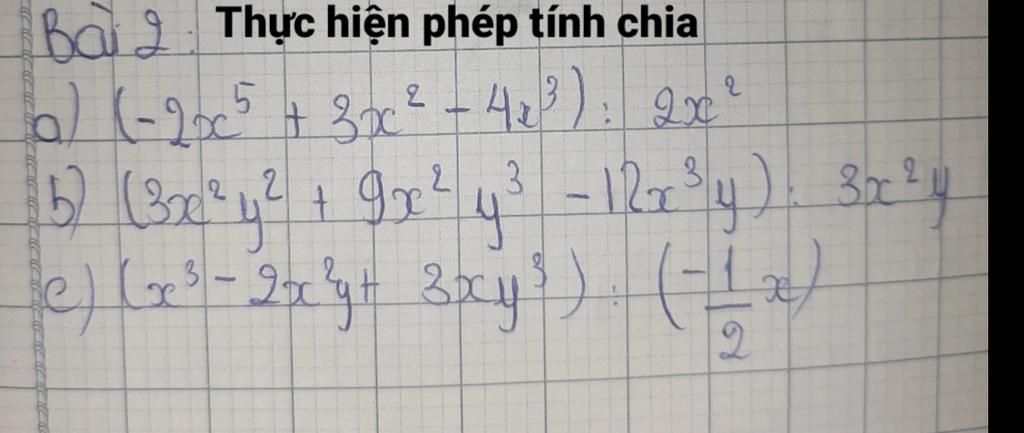 Bài 2: Thực hiện phép tính chia
a) (-2x⁵ + 3x² - 4x³) : 2x²
b) (3x²y² + 9x²y³ - 12x³y) : 3x²y
c) (x³ - 2x²y + 3xy³) : (-1/2 x)